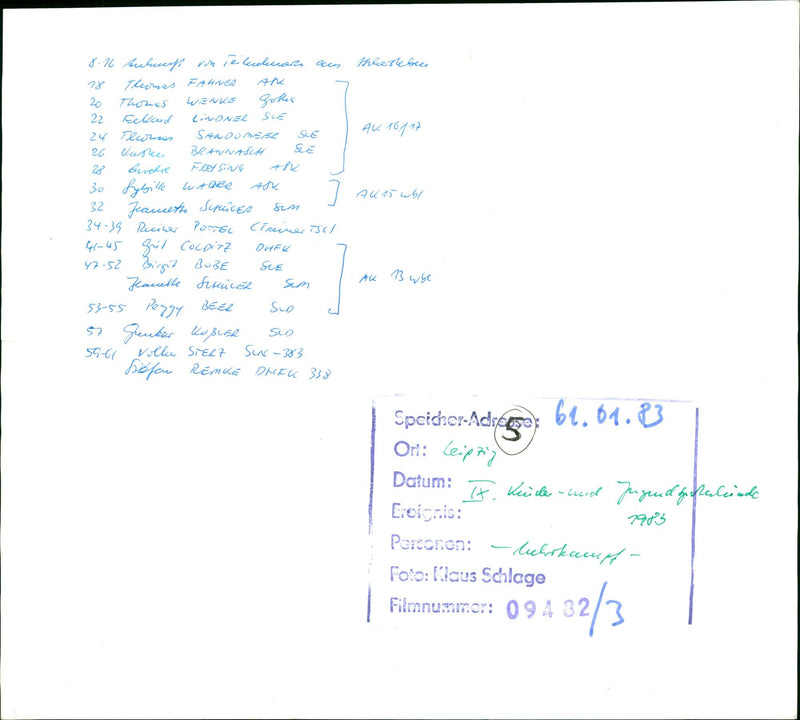 8-16 Ankunft von Teilnehmern aus
18 Thomas FAHNER ASK
20 Thomas WENKE Gotha
22 Eckhard LINDNER SLE
24 Thomas SANDOMEIER SLE
AK 16/17
26 BRANNASCH SLE
28 Andre FREISING ASK
30 Sybille WAGNER ASK
AK 15 wbl
32 Jeannette SCHÜLER SLM
34-39 Rainer POTTEL (Trainer TSC)
41-45 COLDITZ DHFK
47-52 Birgit BUBE SLE
Jeannette SCHÜLER SLM
AK 13 wbl
53-55 Peggy BEER SLD
57 Gunter KUßLER SLD
59-61 Volker STERZ SLK-383
Stefan REMKE DHFK 338
Speicher-Adresse: 61.01.83
5
Ort: Leipzig
Datum: IX. Kinder- und Jugendspartakiade
Ereignis: 1983
Personen: - Mehrkampf -
Foto: Klaus Schlage
Filmnummer: 09482/3